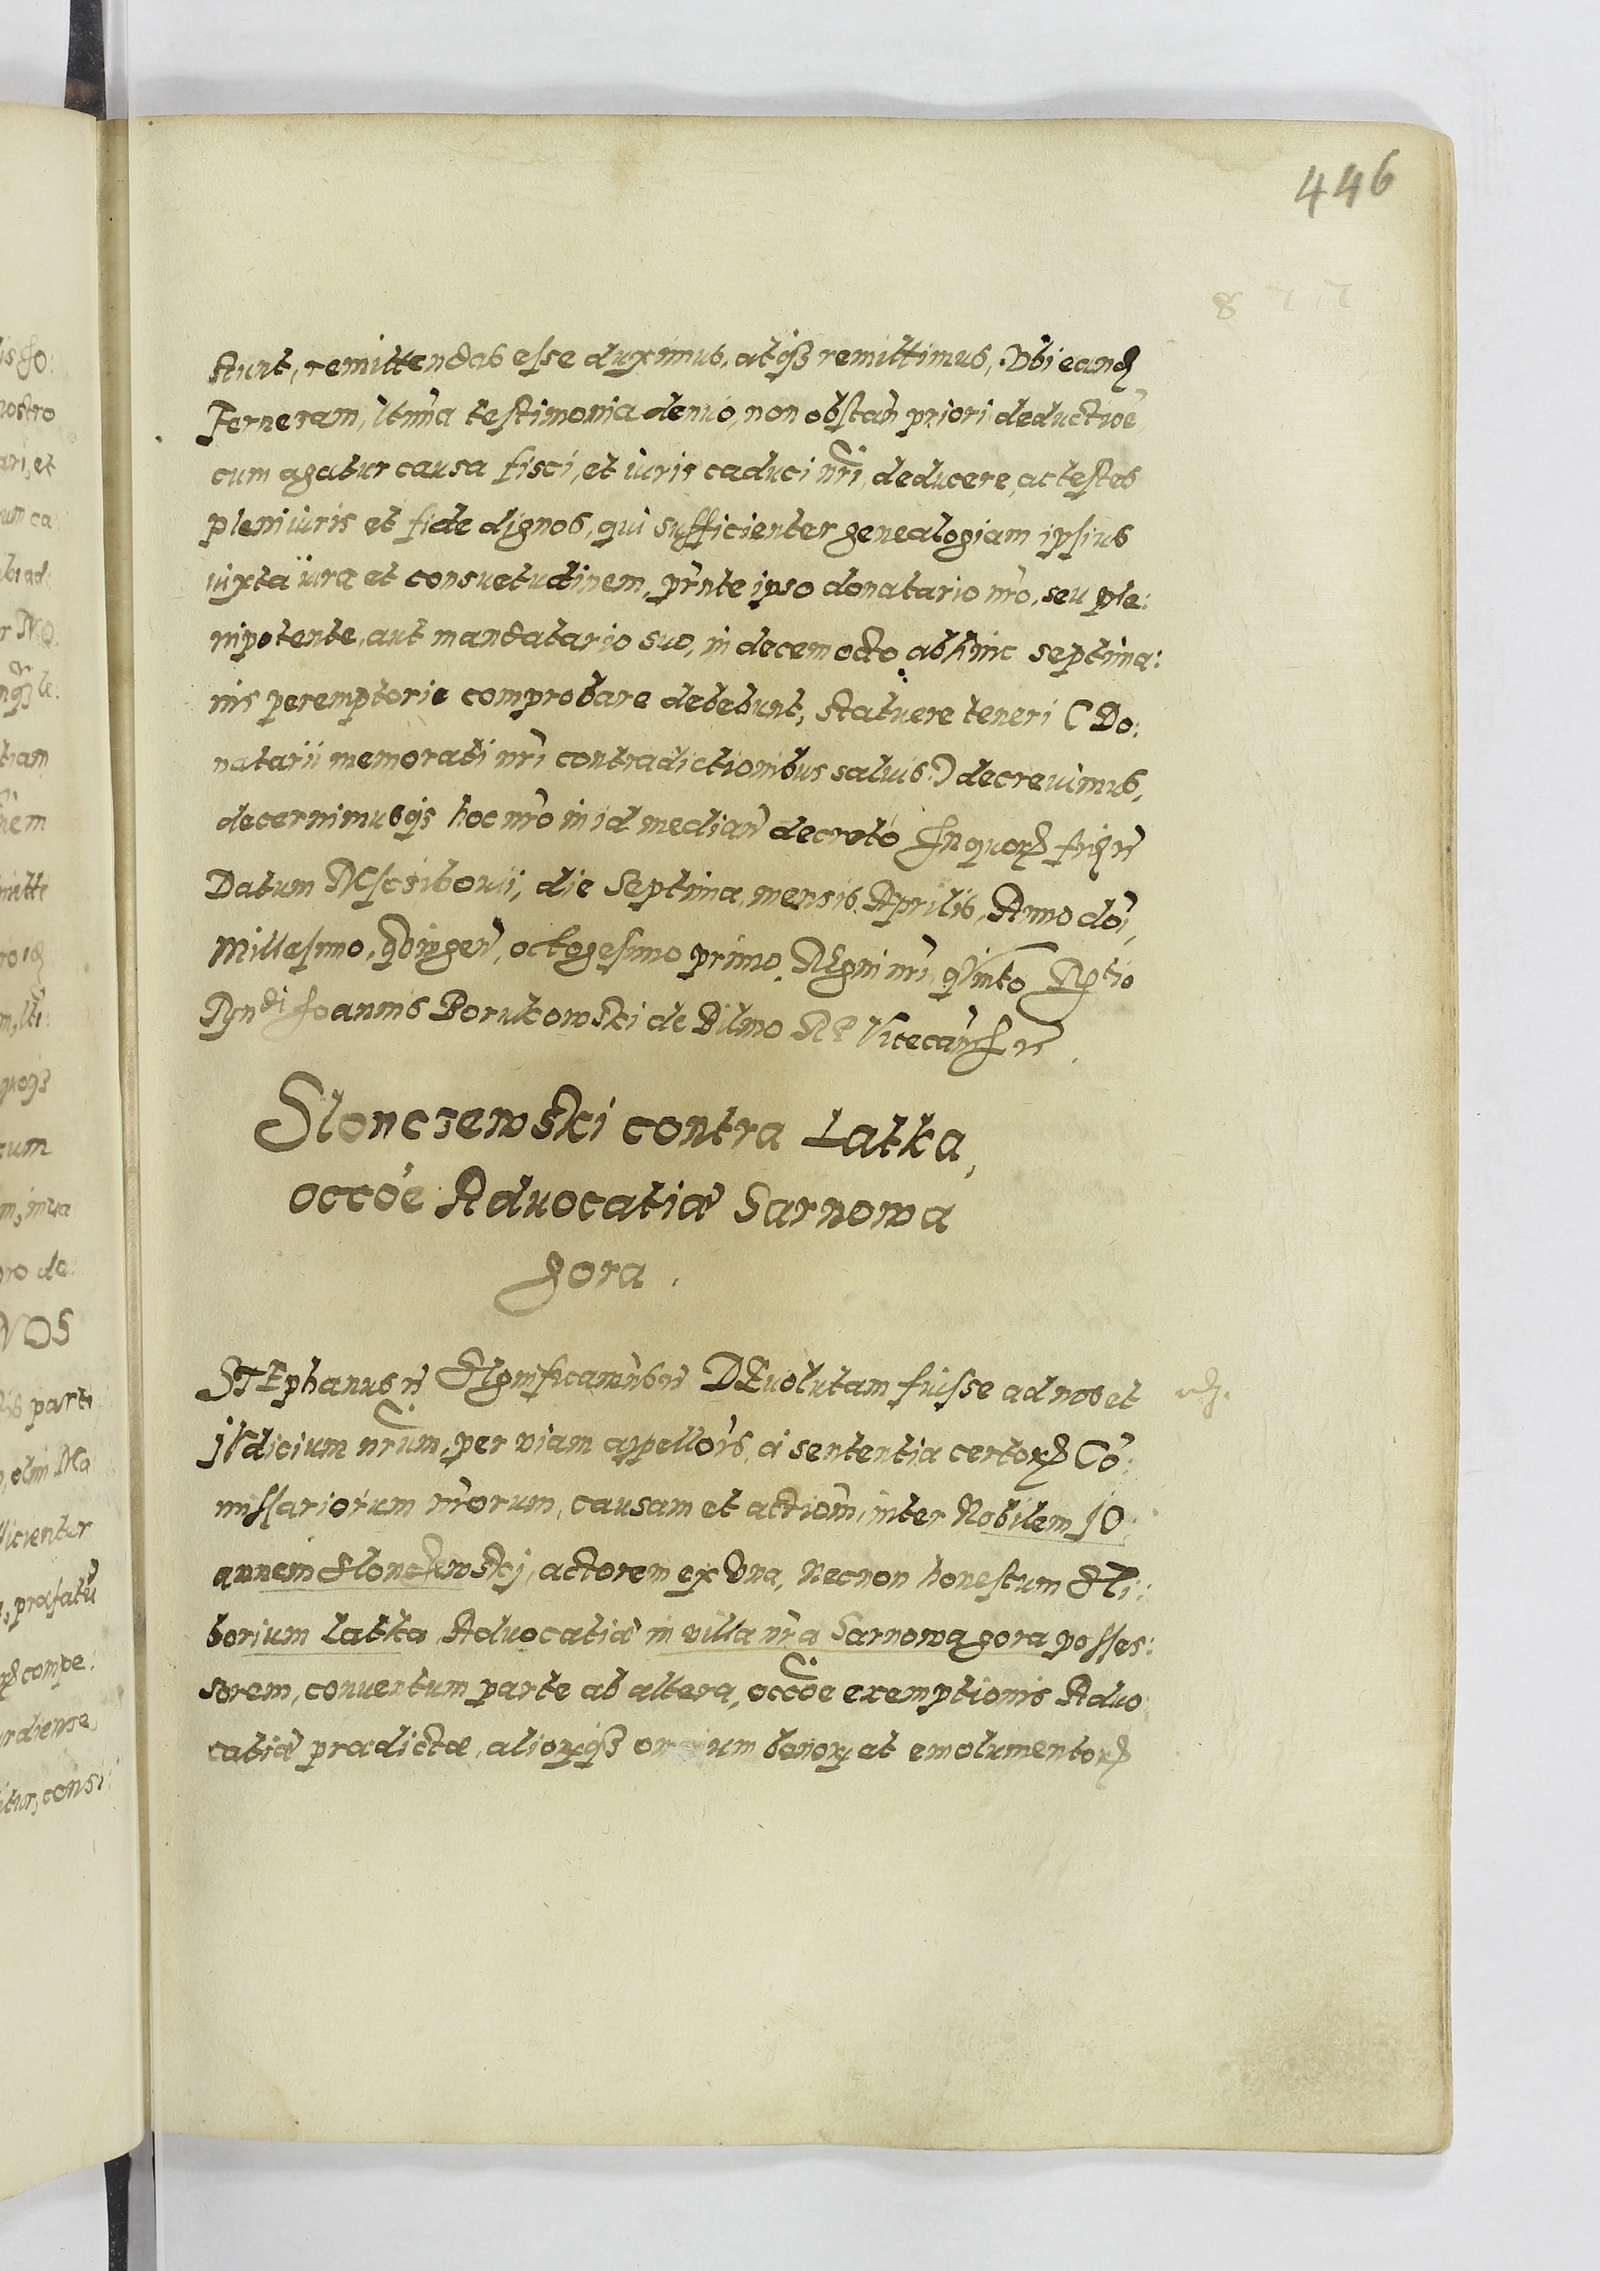 446
stunt, remittendas esse duximus, atq3 remittimus, Vbi eand
Ferneram, ltima testimonia denuo, non obstañ priori deductioē
cum agatur causa fisci, et iuris caduci nr̃i, deducere, ac testes
pleni iuris et fide dignos, qui sufficienter genealogiam ipsius
iuxta iura et consuetudinem, pr̃nte ipso donatario nr̃o, seu ple:
nipotente, aut mandatario suo, in decem octo abhinc septima:
nis peremptorie comprobare debebunt, statuere teneri (Do:
natarii memorati nr̃i contradictionibus saluis) decreuimus,
decernimusqs hoc nr̃o in id median̄ decreto In quor
Datum Mscsibouii, die Septima, mensis Aprilis, Anno doi,
Millesimo, qvingen̄, octogesimo primo, REgni nr̃i qVinto
Joannis Borukowski de Bilino RP Vicecan
Sloncsewski contra Latka,
occõe Aduocatiæ Sarnowa
gora.
STEphanus SIgnificamus DEuolutam fuisse ad nos et
jVdicium nr̃um, per viam appellois, a sententia certor Cō:
missariorum nr̃orum, causam et actiom̄, inter Nobilem JO:
annem Slonczewskj, actorem ex Vna, Necnon honestum STi:
borium Latka Aduocatiæ in villa nr̃a Sarnowagora posses:
sorem, conuentum parte ab altera, occõe exemptionis Aduo
catiæ prædictæ, aliorq3 omnium bonor et emolumentor